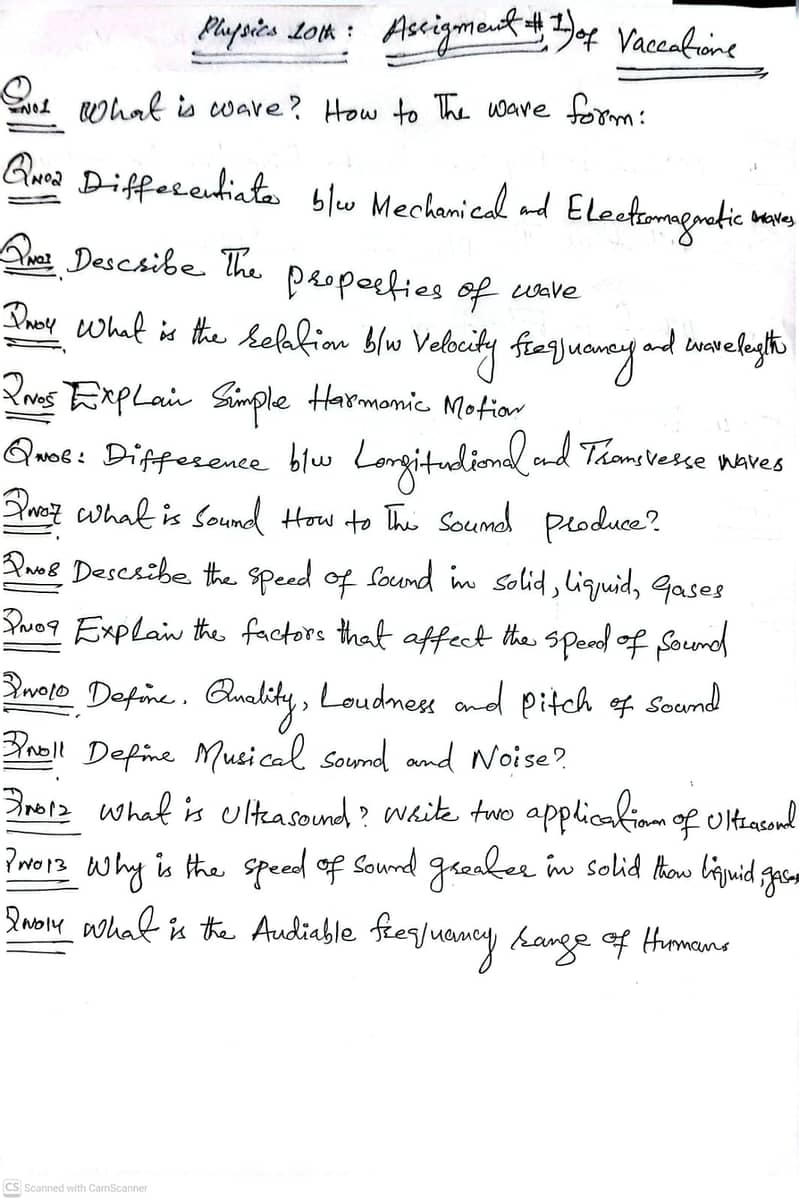 Physics 10th: Assigment # 1) of Vaccations
QNo1 What is wave? How to The wave form:
QNo2 Differentiate b/w Mechanical and Electromagnatic waves
QNo3 Describe The properties of wave
QNo4 What is the relation b/w Velocity frequancy and wavelegth
QNo5 Explain Simple Harmonic Motion
QNo6: Difference b/w Longitudional and Transverse waves
QNo7 What is Sound How to The Sound produce?
QNo8 Describe the speed of Sound in solid, liquid, gases
QNo9 Explain the factors that affect the speed of Sound
QNo10 Define. Quality, Loudness and pitch of sound
QNo11 Define Musical sound and Noise?
QNo12 What is Ultrasound? Write two application of Ultrasond
QNo13 Why is the speed of Sound greater in solid than liquid, gases
QNo14 What is the Audiable frequancy range of Humans
CS Scanned with CamScanner